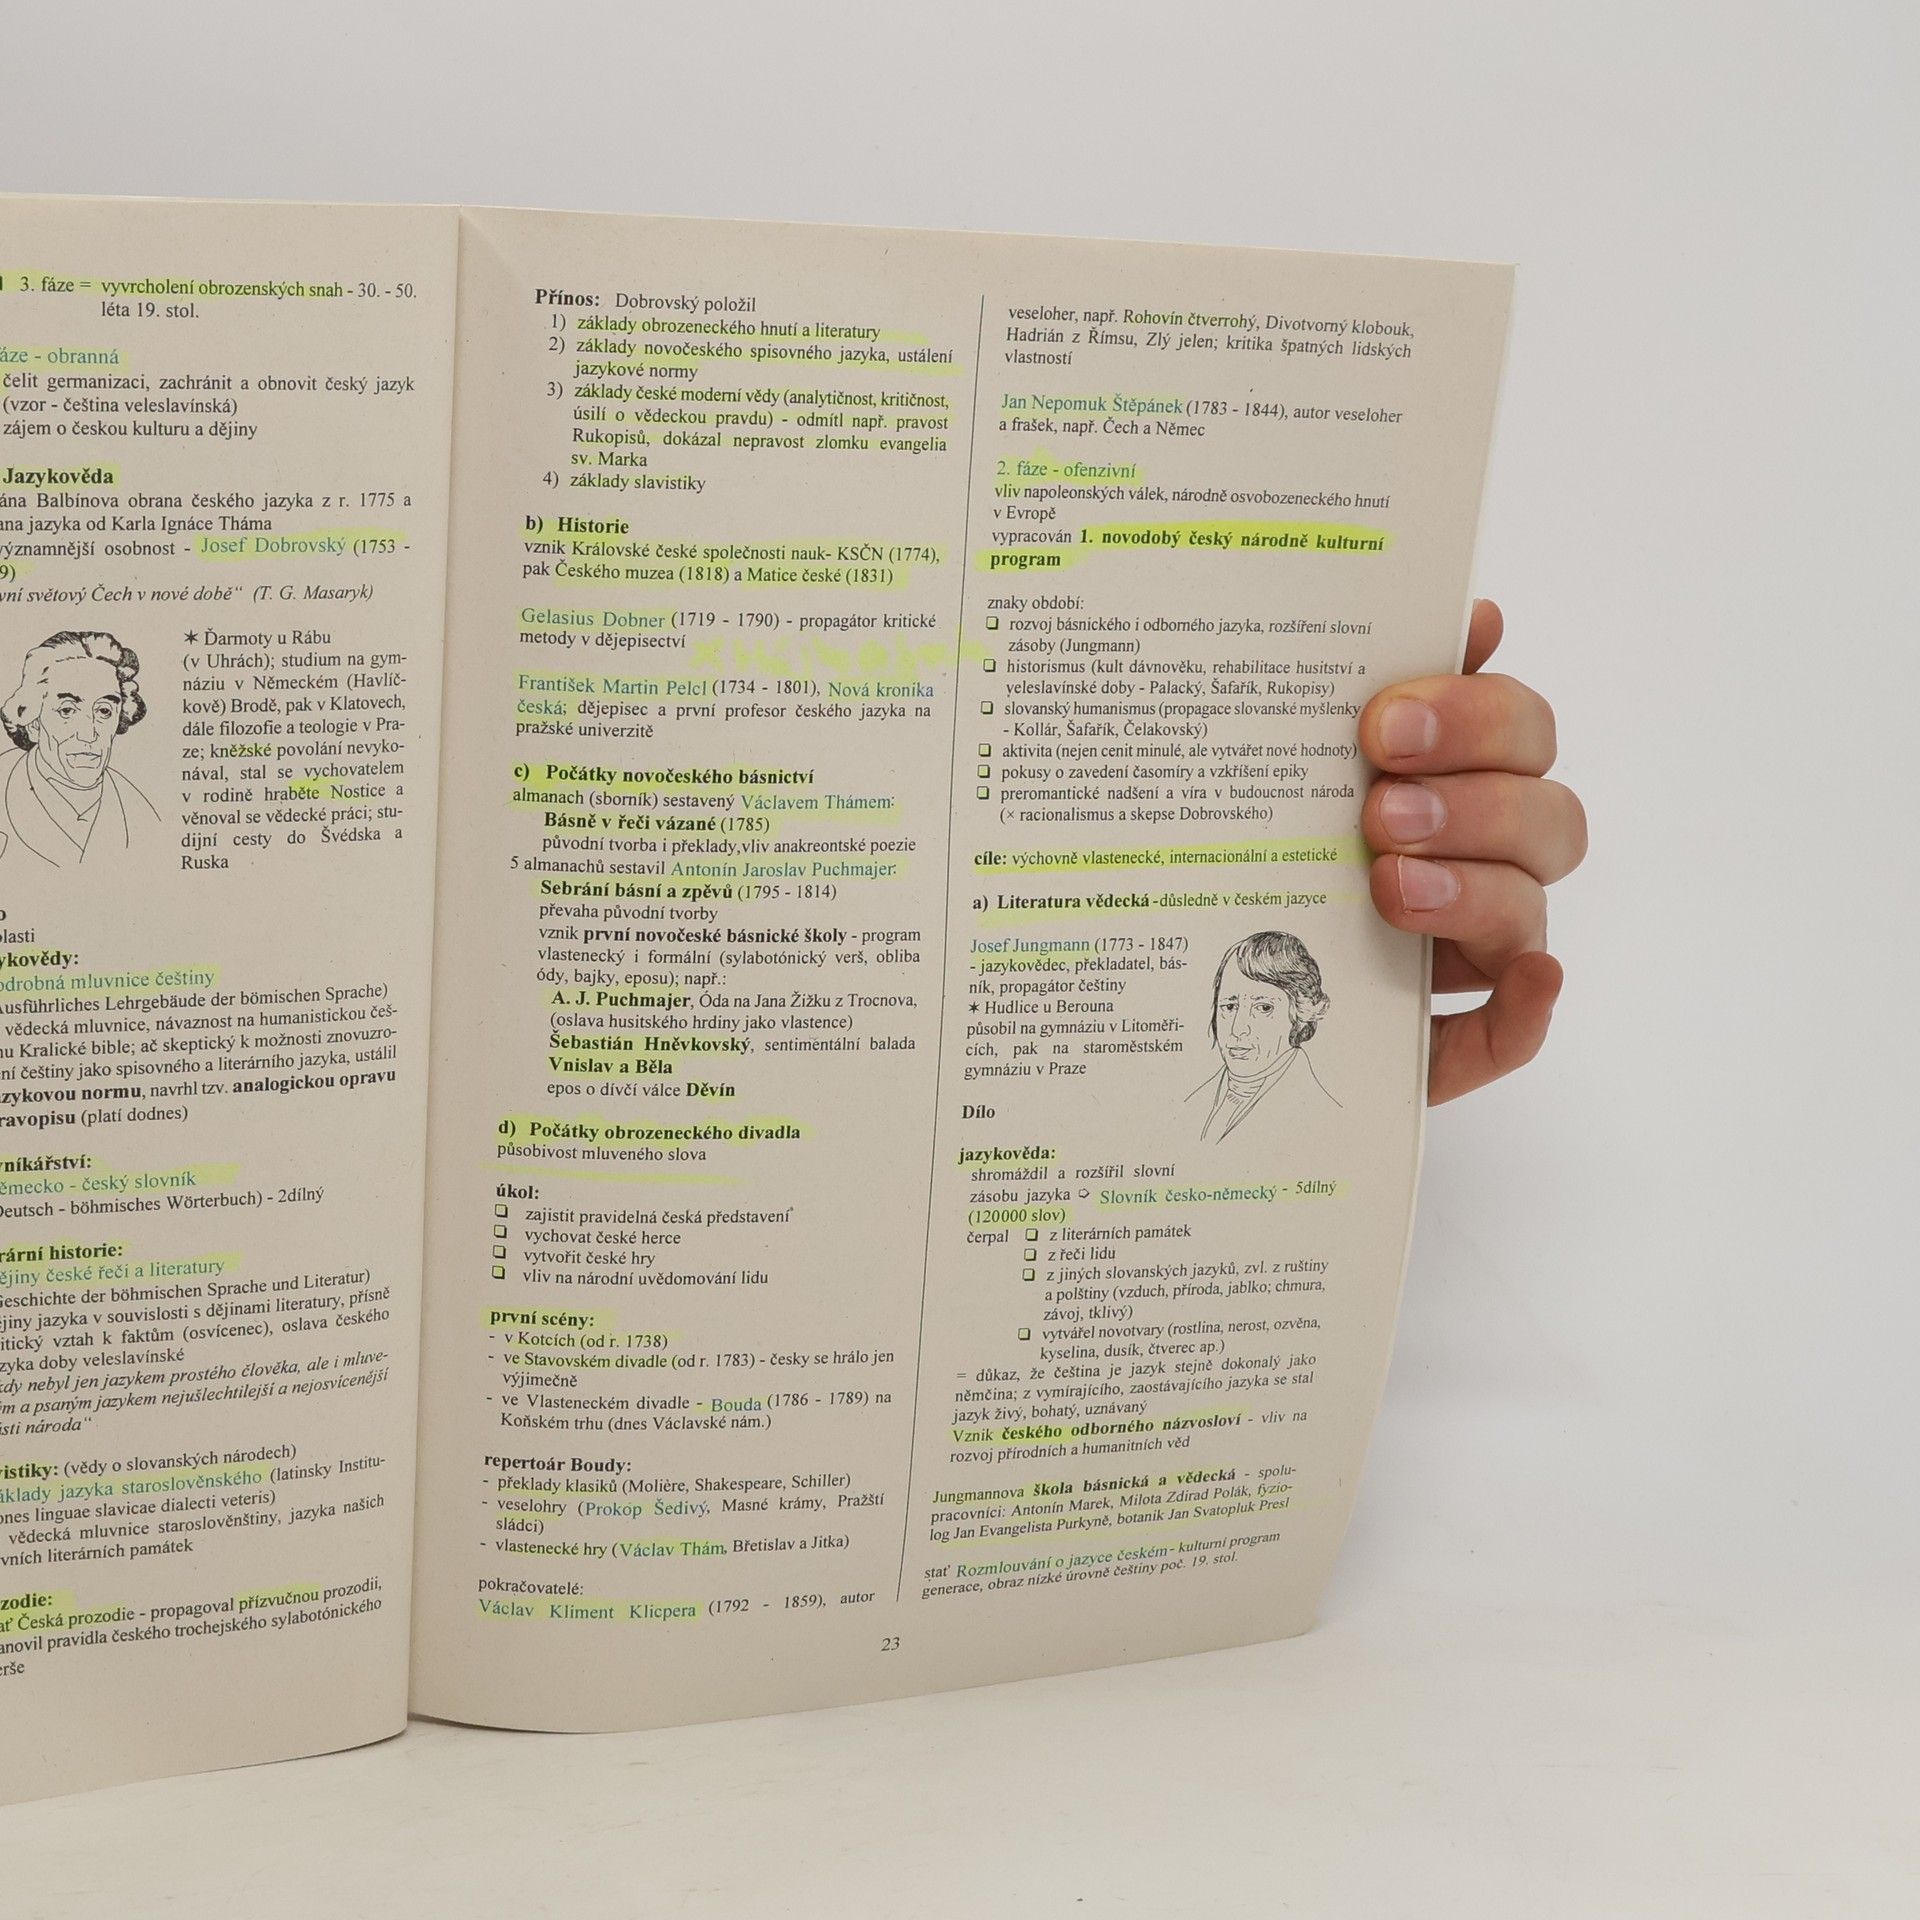 3. fáze = vyvrcholení obrozenských snah - 30. - 50.
léta 19. stol.
fáze - obranná
čelit germanizaci, zachránit a obnovit český jazyk
(vzor - čeština veleslavínská)
zájem o českou kulturu a dějiny
Jazykověda
Balbínova obrana českého jazyka z r. 1775 a
jazyka od Karla Ignáce Tháma
osobnost - Josef Dobrovský (1753 -
9)
světový Čech v nové době“ (T. G. Masaryk)
✶ Ďarmoty u Rábu
(v Uhrách); studium na gym-
náziu v Německém (Havlíč-
kově) Brodě, pak v Klatovech,
dále filozofie a teologie v Pra-
ze; kněžské povolání nevyko-
nával, stal se vychovatelem
v rodině hraběte Nostice a
věnoval se vědecké práci; stu-
dijní cesty do Švédska a
Ruska
mluvnice češtiny
Lehrgebäude der bömischen Sprache)
vědecká mluvnice, návaznost na humanistickou češ-
Kralické bible; ač skeptický k možnosti znovuzro-
ní češtiny jako spisovného a literárního jazyka, ustálil
normu, navrhl tzv. analogickou opravu
(platí dodnes)
- český slovník
- böhmisches Wörterbuch) - 2dílný
historie:
české řeči a literatury
der böhmischen Sprache und Literatur)
jazyka v souvislosti s dějinami literatury, přísně
vztah k faktům (osvícenec), oslava českého
doby veleslavínské
nebyl jen jazykem prostého člověka, ale i mluve-
a psaným jazykem nejušlechtilejší a nejosvícenější
národa“
(vědy o slovanských národech)
jazyka staroslověnského (latinsky Institu-
linguae slavicae dialecti veteris)
vědecká mluvnice staroslověnštiny, jazyka našich
literárních památek
Česká prozodie - propagoval přízvučnou prozodii,
pravidla českého trochejského sylabotónického
Přínos: Dobrovský položil
1) základy obrozeneckého hnutí a literatury
2) základy novočeského spisovného jazyka, ustálení
jazykové normy
3) základy české moderní vědy (analytičnost, kritičnost,
úsilí o vědeckou pravdu) - odmítl např. pravost
Rukopisů, dokázal nepravost zlomku evangelia
sv. Marka
4) základy slavistiky
b) Historie
vznik Královské české společnosti nauk- KSČN (1774),
pak Českého muzea (1818) a Matice české (1831)
Gelasius Dobner (1719 - 1790) - propagátor kritické
metody v dějepisectví
František Martin Pelcl (1734 - 1801), Nová kronika
česká; dějepisec a první profesor českého jazyka na
pražské univerzitě
c) Počátky novočeského básnictví
almanach (sborník) sestavený Václavem Thámem:
Básně v řeči vázané (1785)
původní tvorba i překlady,vliv anakreontské poezie
5 almanachů sestavil Antonín Jaroslav Puchmajer:
Sebrání básní a zpěvů (1795 - 1814)
převaha původní tvorby
vznik první novočeské básnické školy - program
vlastenecký i formální (sylabotónický verš, obliba
ódy, bajky, eposu); např.:
A. J. Puchmajer, Óda na Jana Žižku z Trocnova,
(oslava husitského hrdiny jako vlastence)
Šebastián Hněvkovský, sentimentální balada
Vnislav a Běla
epos o dívčí válce Děvín
d) Počátky obrozeneckého divadla
působivost mluveného slova
úkol:
❏ zajistit pravidelná česká představení
❏ vychovat české herce
❏ vytvořit české hry
❏ vliv na národní uvědomování lidu
první scény:
- v Kotcích (od r. 1738)
- ve Stavovském divadle (od r. 1783) - česky se hrálo jen
výjimečně
- ve Vlasteneckém divadle - Bouda (1786 - 1789) na
Koňském trhu (dnes Václavské nám.)
repertoár Boudy:
- překlady klasiků (Molière, Shakespeare, Schiller)
- veselohry (Prokop Šedivý, Masné krámy, Pražští
sládci)
- vlastenecké hry (Václav Thám, Břetislav a Jitka)
pokračovatelé:
Václav Kliment Klicpera (1792 - 1859), autor
veseloher, např. Rohovín čtverrohý, Divotvorný klobouk,
Hadrián z Římsu, Zlý jelen; kritika špatných lidských
vlastností
Jan Nepomuk Štěpánek (1783 - 1844), autor veseloher
a frašek, např. Čech a Němec
2. fáze - ofenzivní
vliv napoleonských válek, národně osvobozeneckého hnutí
v Evropě
vypracován 1. novodobý český národně kulturní
program
znaky období:
❏ rozvoj básnického i odborného jazyka, rozšíření slovní
zásoby (Jungmann)
❏ historismus (kult dávnověku, rehabilitace husitství a
veleslavínské doby - Palacký, Šafařík, Rukopisy)
❏ slovanský humanismus (propagace slovanské myšlenky
- Kollár, Šafařík, Čelakovský)
❏ aktivita (nejen cenit minulé, ale vytvářet nové hodnoty)
❏ pokusy o zavedení časomíry a vzkříšení epiky
❏ preromantické nadšení a víra v budoucnost národa
(× racionalismus a skepse Dobrovského)
cíle: výchovně vlastenecké, internacionální a estetické
a) Literatura vědecká -důsledně v českém jazyce
Josef Jungmann (1773 - 1847)
- jazykovědec, překladatel, bás-
ník, propagátor češtiny
✶ Hudlice u Berouna
působil na gymnáziu v Litoměři-
cích, pak na staroměstském
gymnáziu v Praze
Dílo
jazykověda:
shromáždil a rozšířil slovní
zásobu jazyka ➪ Slovník česko-německý - 5dílný
(120000 slov)
čerpal ❏ z literárních památek
❏ z řeči lidu
❏ z jiných slovanských jazyků, zvl. z ruštiny
a polštiny (vzduch, příroda, jablko; chmura,
závoj, tklivý)
❏ vytvářel novotvary (rostlina, nerost, ozvěna,
kyselina, dusík, čtverec ap.)
= důkaz, že čeština je jazyk stejně dokonalý jako
němčina; z vymírajícího, zaostávajícího jazyka se stal
jazyk živý, bohatý, uznávaný
Vznik českého odborného názvosloví - vliv na
rozvoj přírodních a humanitních věd
Jungmannova škola básnická a vědecká - spolu-
pracovníci: Antonín Marek, Milota Zdirad Polák, fyzio-
log Jan Evangelista Purkyně, botanik Jan Svatopluk Presl
stať Rozmlouvání o jazyce českém - kulturní program
generace, obraz nízké úrovně češtiny poč. 19. stol.
23